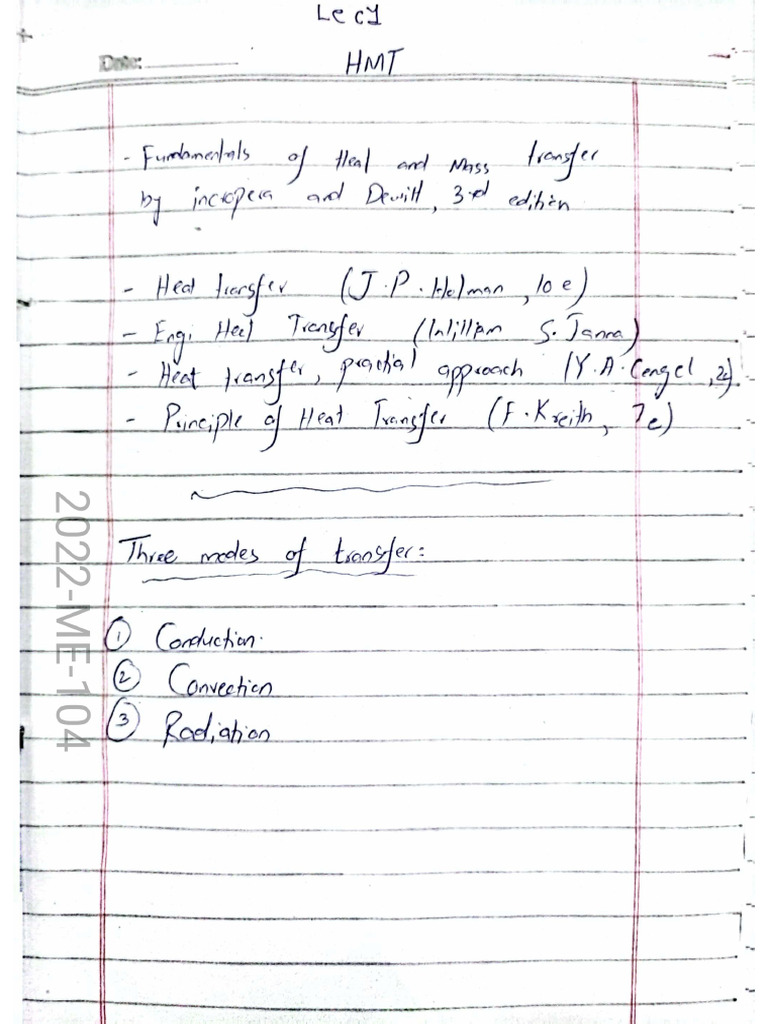 Lec 1
Date:
HMT
- Fundamentals of Heat and Mass transfer
by incropera and Dewitt, 3rd edition
- Heat transfer (J.P. Holman, 10 e)
- Eng. Heat Transfer (William S. Janna)
- Heat transfer, practial approach (Y.A. Cengel, 2e)
- Principle of Heat Transfer (F. Kreith, 7e)
Three modes of transfer:
① Conduction.
② Convection
③ Radiation
2022-ME-104